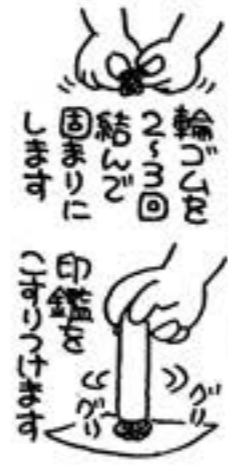 輪ゴムを
2~3回
結んで
固まりに
します
印鑑を
こすりつけます
グリ
グリ